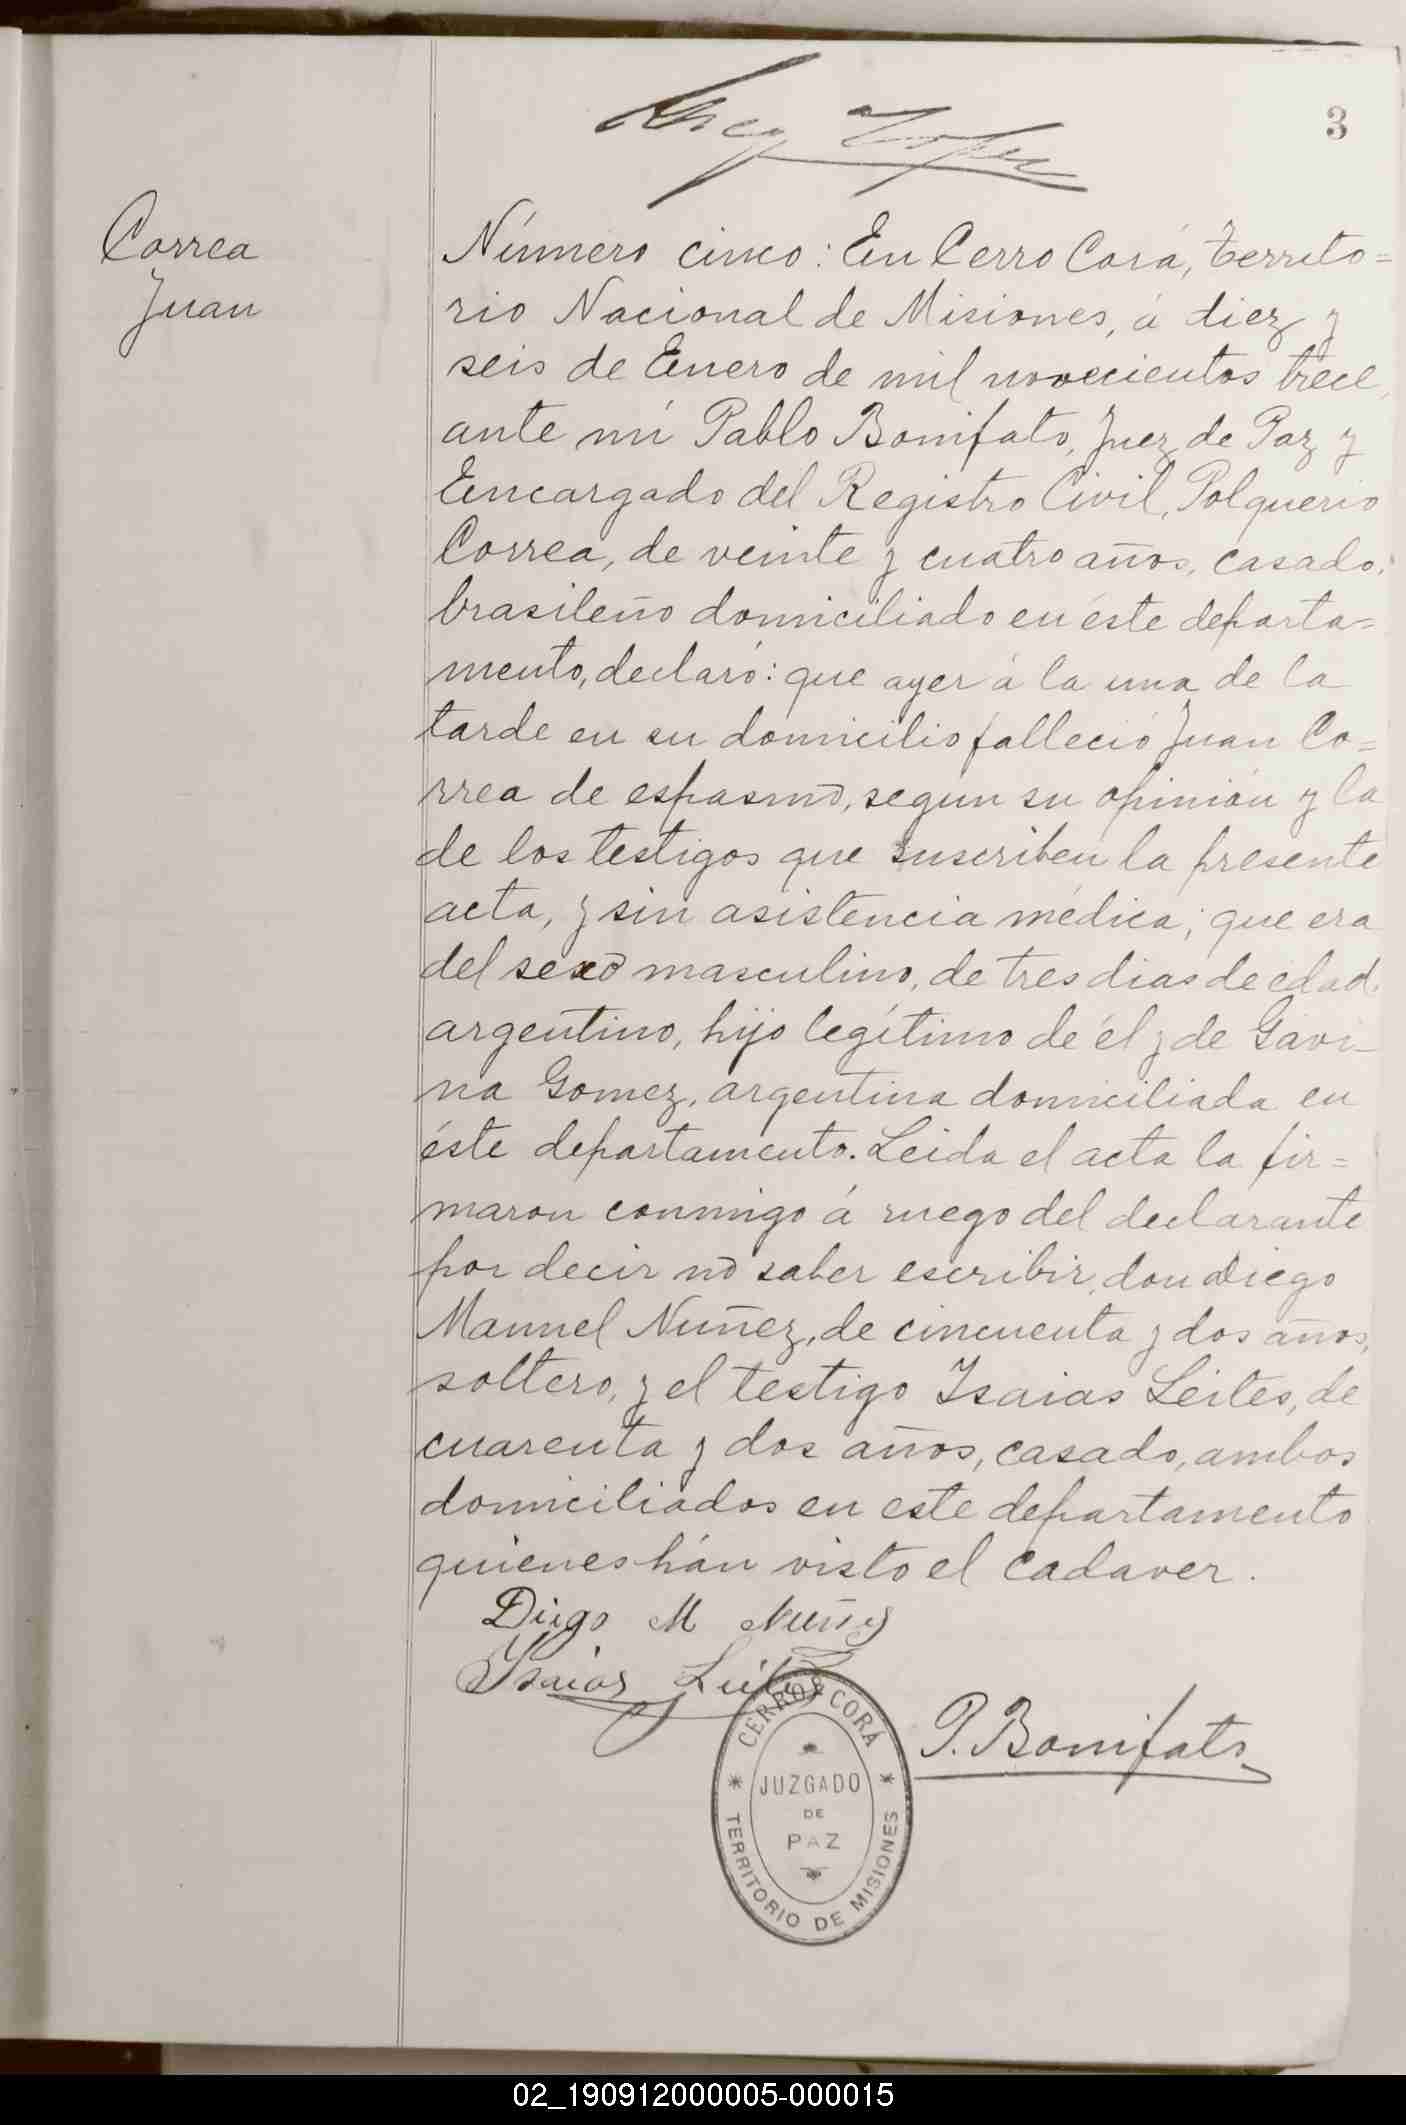 3
Correa
Juan
Número cinco: En Cerro Corá, territo=
rio Nacional de Misiones, á diez y
seis de Enero de mil novecientos trece,
ante mí Pablo Bonifato, Juez de Paz y
Encargado del Registro Civil, Polquerio
Correa, de veinte y cuatro años, casado,
brasileño domiciliado en éste departa=
mento, declaró: que ayer á la una de la
tarde en su domicilio falleció Juan Co=
rrea de espasmo, segun su opinión y la
de los testigos que suscriben la presente
acta, y sin asistencia médica; que era
del sexo masculino, de tres dias de edad,
argentino, hijo legítimo de él y de Gavi-
na Gomez, argentina domiciliada en
éste departamento. Leida el acta la fir=
maron conmigo á ruego del declarante
por decir no saber escribir, don Diego
Manuel Nuñez, de cincuenta y dos años,
soltero, y el testigo Isaias Leites, de
cuarenta y dos años, casado, ambos
domiciliados en este departamento
quienes hán visto el cadaver.
Diego M Nuñez
Isaias Leites
P. Bonifato
CERRO CORÁ
JUZGADO
DE
PAZ
TERRITORIO DE MISIONES
02_190912000005-000015